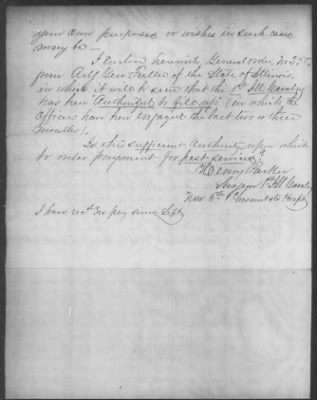 your own purposes or wishes in such case
may be —
I enclose herewith General order No 25
from Adjt Gen Fuller of the State of Illinois
in which it will be seen that the 1st Ill Cavalry
has been Authorized to fill out (in which the
Officers have been engaged the last two or three
months).
Is this sufficient Authority upon which
to order payment for past service
Henry Parker
Surgeon 1st Ill Cavalry
Nov 6th
I have recd no pay since Sept